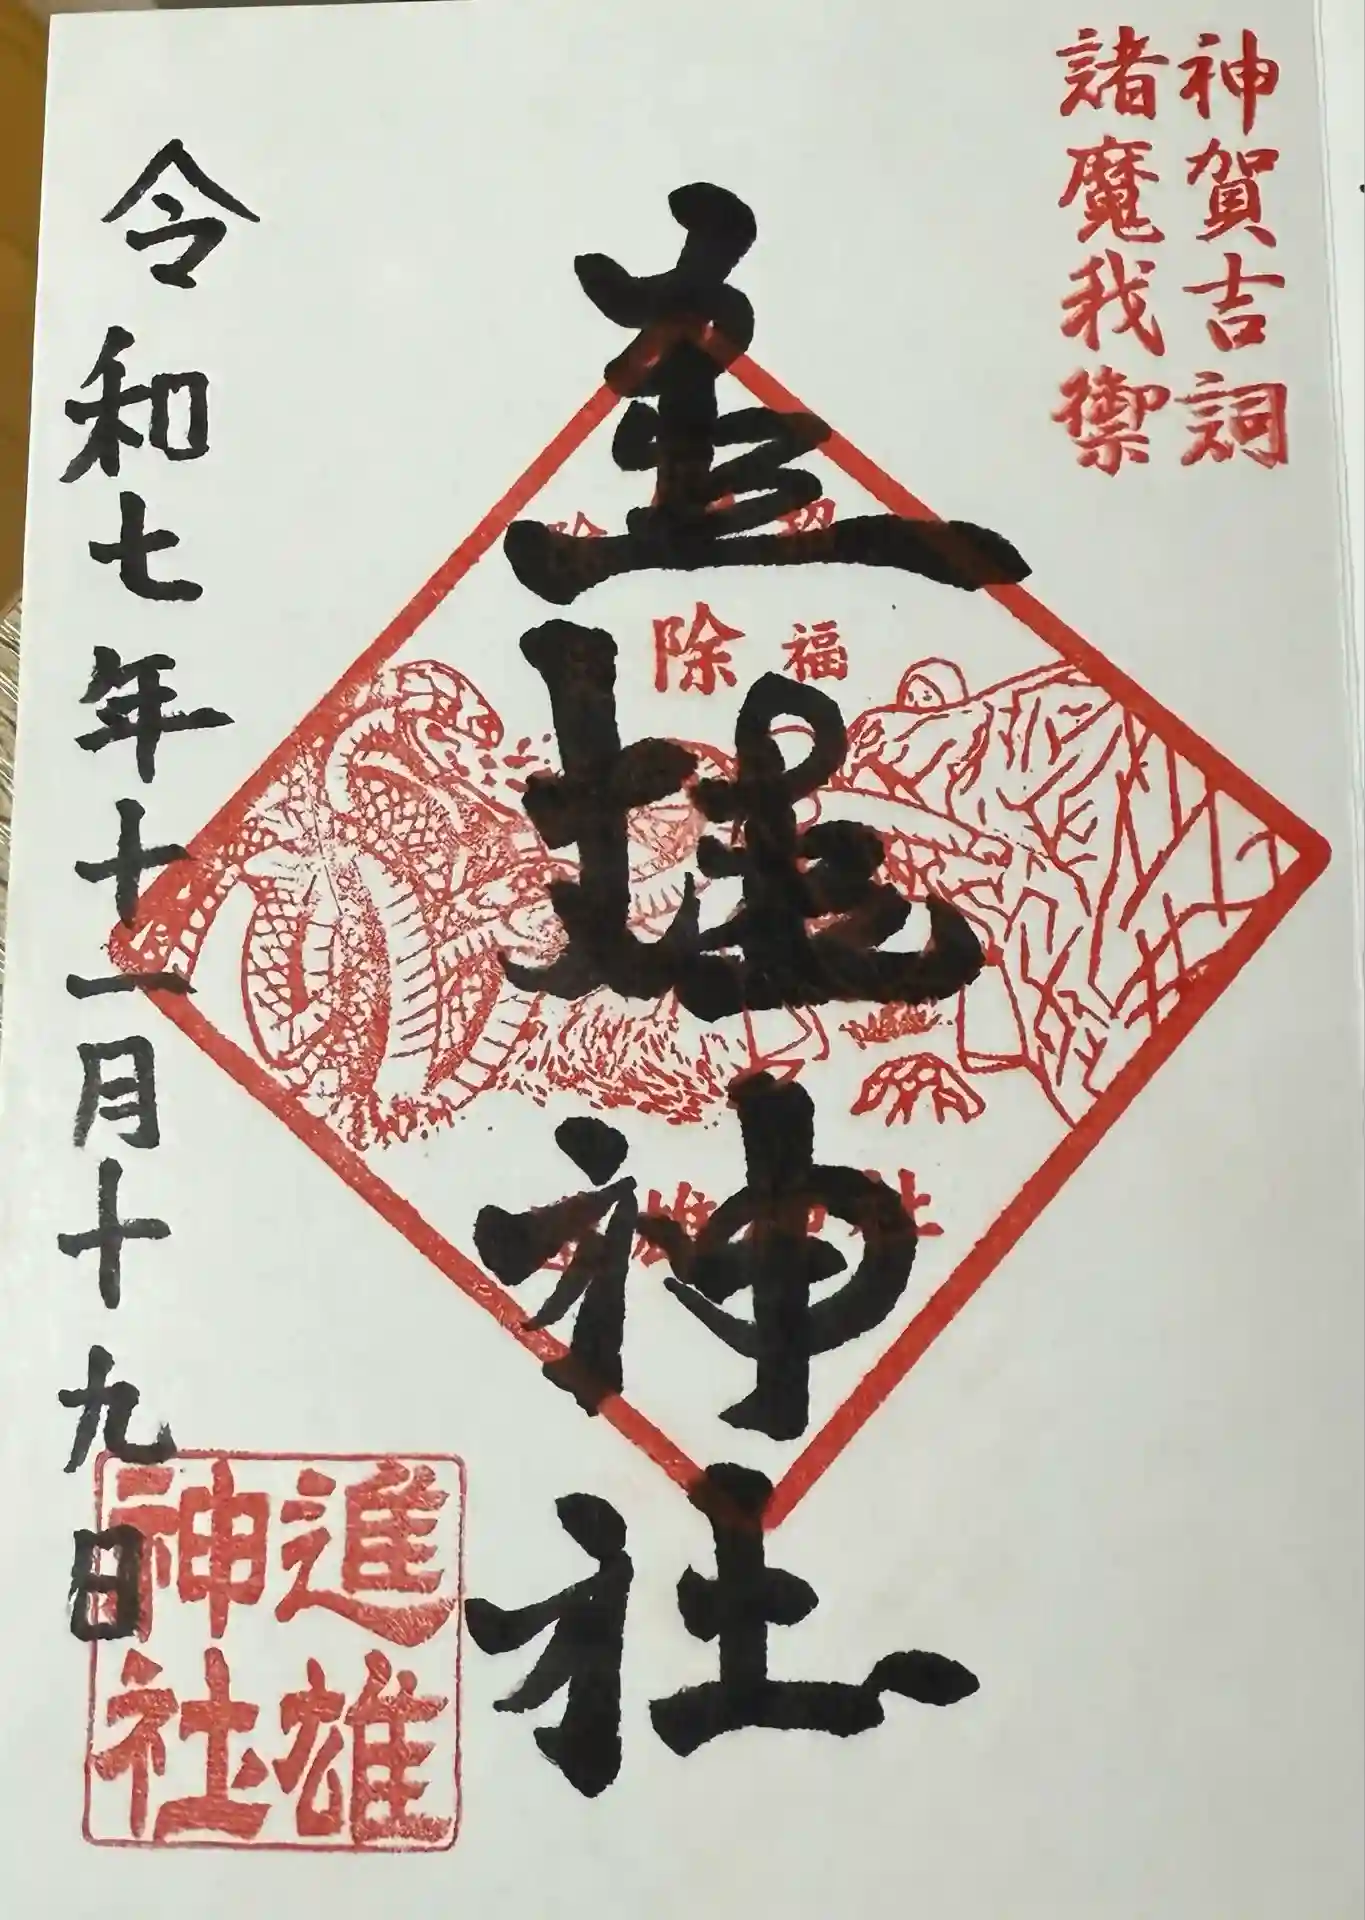 神賀吉詞
諸魔我禦
除 福
進雄神社
進雄神社
令和七年十一月十九日
進雄
神社